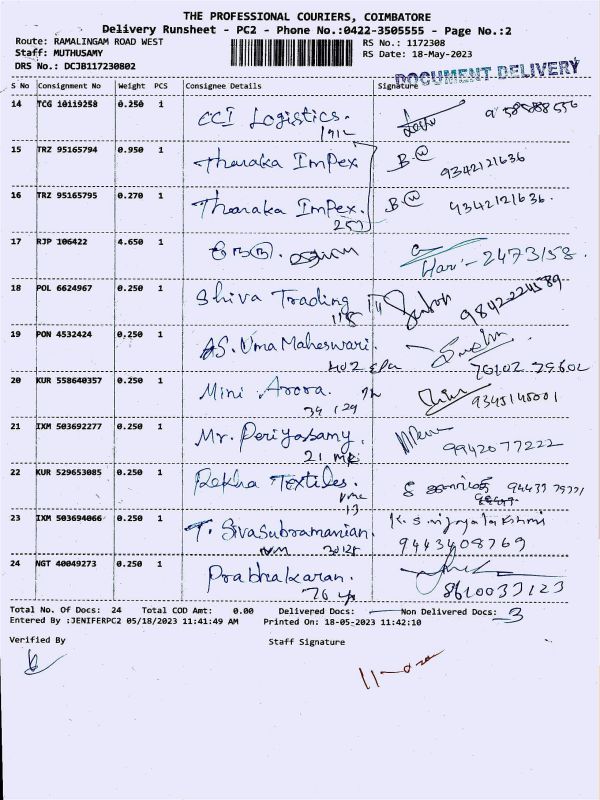 THE PROFESSIONAL COURIERS, COIMBATORE
Delivery Runsheet - PC2 - Phone No.:0422-3505555 - Page No.:2
Route: RAMALINGAM ROAD WEST
RS No.: 1172308
Staff: MUTHUSAMY
RS Date: 18-May-2023
DRS No.: DCJB117230802
DOCUMENT DELIVERY
S No Consignment No Weight PCS Consignee Details Signature
14 TCG 10119258 0.250 1 CCI Logistics.
15 TRZ 95165794 0.950 1 Tharaka Impex B. 9342121636
16 TRZ 95165795 0.270 1 Tharaka Impex. B. 9342121636.
257
17 RJP 106422 4.650 1 Hari - 2473158.
18 POL 6624967 0.250 1 Shiva Trading 9842224589
19 PON 4532424 0.250 1 AS. Uma Maheswari.
20 KUR 558640357 0.250 1 Mini Arora. 9345145001
34 129
21 IXM 503692277 0.250 1 Mr. Periyasamy. 9942077222
22 KUR 529653085 0.250 1 Rekha Textiles.
13
23 IXM 503694066 0.250 1 T. Sivasubramanian. K.S. Vijayalakshmi
9443408769
24 NGT 40049273 0.250 1 Prabhakaran.
8610033123
Total No. Of Docs: 24 Total COD Amt: 0.00 Delivered Docs: Non Delivered Docs: 3
Entered By :JENIFERPC2 05/18/2023 11:41:49 AM Printed On: 18-05-2023 11:42:10
Verified By Staff Signature